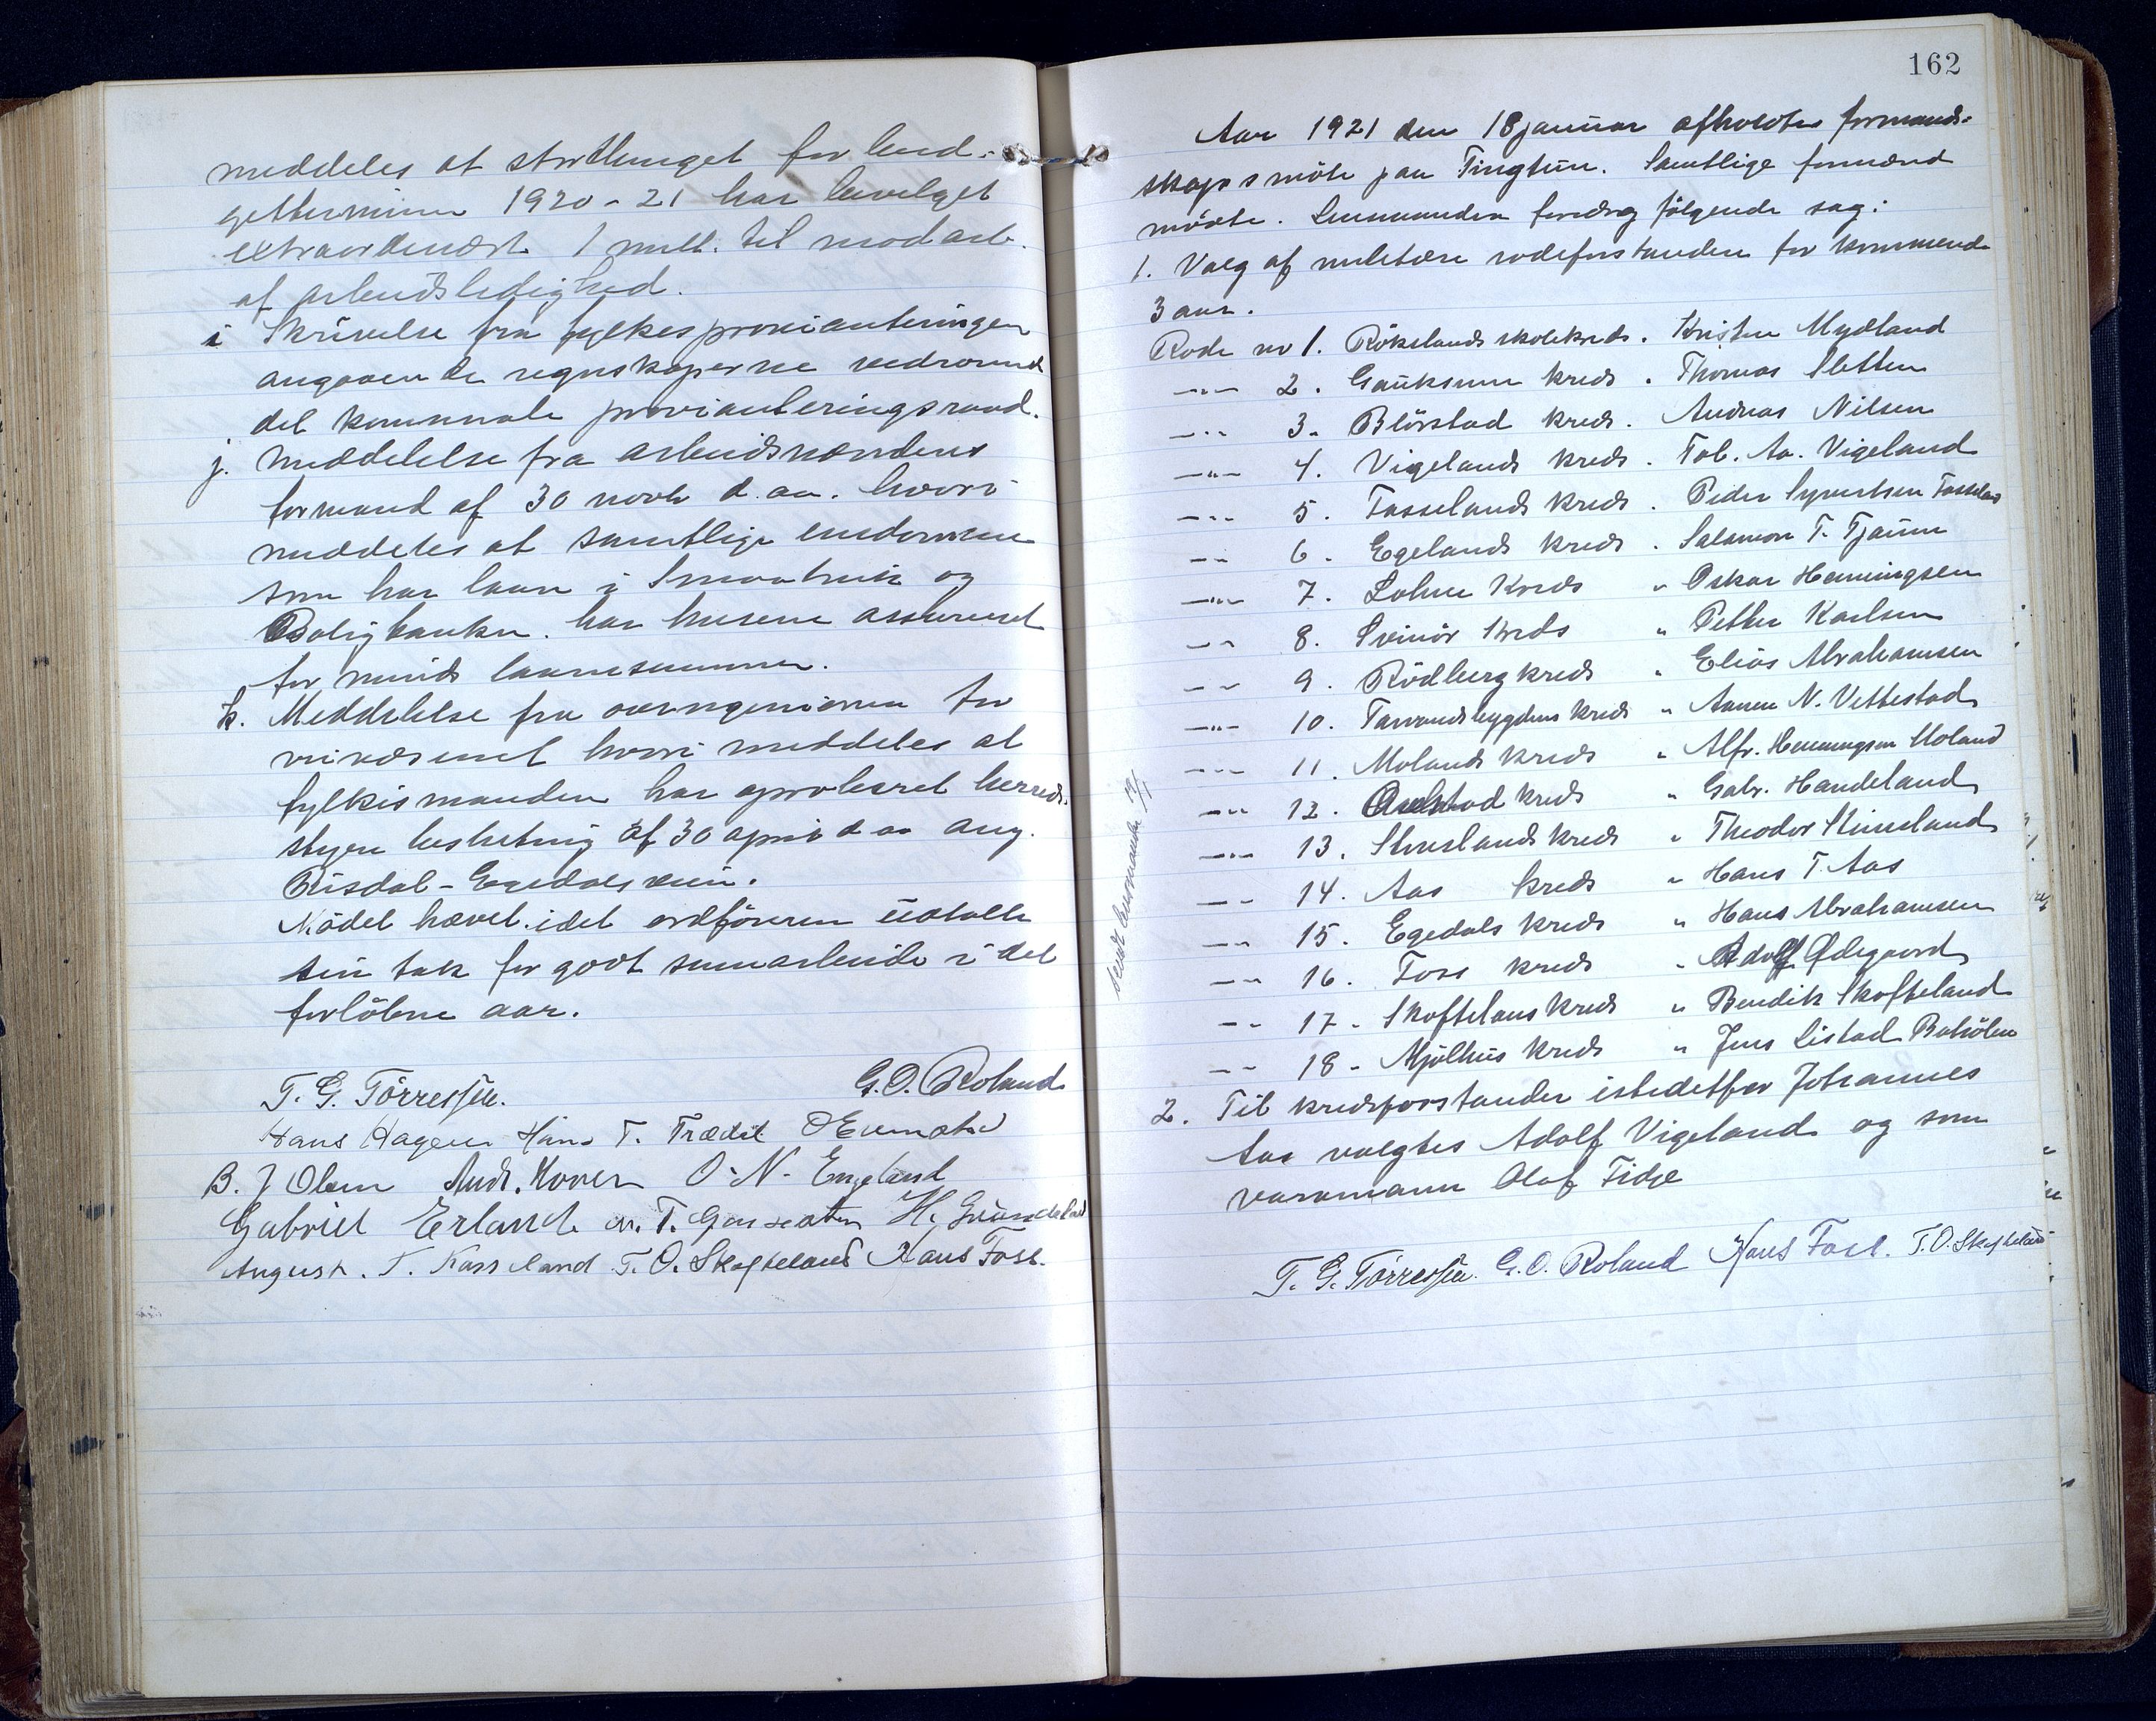 meddeles at storthinget for bud-
getterminen 1920-21 har bevilget
extraordinært 1 mill. til modarb.
af arbeidsledighed.
i Skrivelse fra fylkesprovianteringen
angaaende regnskaperne vedrørend
det komunale provianteringsraad.
j. Meddelelse fra arbeidsnemdens
formand af 30 novb d. aa. hvori
meddeles at samtlige eiendomme
som har laan i Smaabruk og
Boligbanken. har husene assureret
for minds laanesummen.
k. Meddelelse fra overingeniøren for
veivæsenet hvori meddeles at
fylkesmanden har aprobert herreds-
styres beslutning af 30 april d aa ang.
Risdal-Egedalsveien.
Mödet hævet. idet ordføreren üdtalte
sin tak for godt samarbeide i det
forløbne aar.
T. G. Tórressen. G. O. Roland
Hans Hagen Hans T. Trædal
B. J Olsen Andr. Hoven O. N. Engeland
Gabriel Erland H.
August. T. Kasseland T. O. Skofteland Hans Foss.
162
Aar 1921 den 18 januar afholdtes formand-
skapsmöte paa Tingtün. Samtlige formænd
mödte. Lensmanden foredrog fölgende sag:
1. Valg af militære rodeforstandere for kommende
3 aar.
Rode no 1. Rökelands skolekreds. Kristen Mydland
-"- 2. kreds. Thomas Sletten
-"- 3. Blörstad kreds. Andreas Nilsen
-"- 4. Vigelands kreds. Tob. Aa. Vigeland
-"- 5. Tasselands kreds. Peder Syvertsen
-"- 6. Egelands kreds. Salamon T. Tjaum
-"- 7. Lohne Kreds " Oskar Henningsen
-"- 8. Svinör kreds " Petter Karlsen
-"- 9. Rödberg kreds " Elias Abrahamsen
-"- 10. Tarvandsbygdens kreds " Aanen N. Vettestad
-"- 11. Molands kreds " Alfr. Henningsen Moland
-"- 12. kreds " Gabr. Handeland
-"- 13. Stenslands kreds " Theodor Stensland
-"- 14. Aas kreds " Hans T. Aas
-"- 15. Egedals kreds " Hans Abrahamsen
-"- 16. Foss kreds " Adolf Ødegaard
-"- 17. Skoftelans kreds " Bendik Skofteland
-"- 18. Mjölhus kreds " Jens Listad
2. Til kredsforstander istedetfor Johannes
Aas valgtes Adolf Vigeland og som
varamann Olaf Fidje
T. G. Tórressen. G. O. Roland Hans Foss. T. O. Skofteland
sendt lensmanden